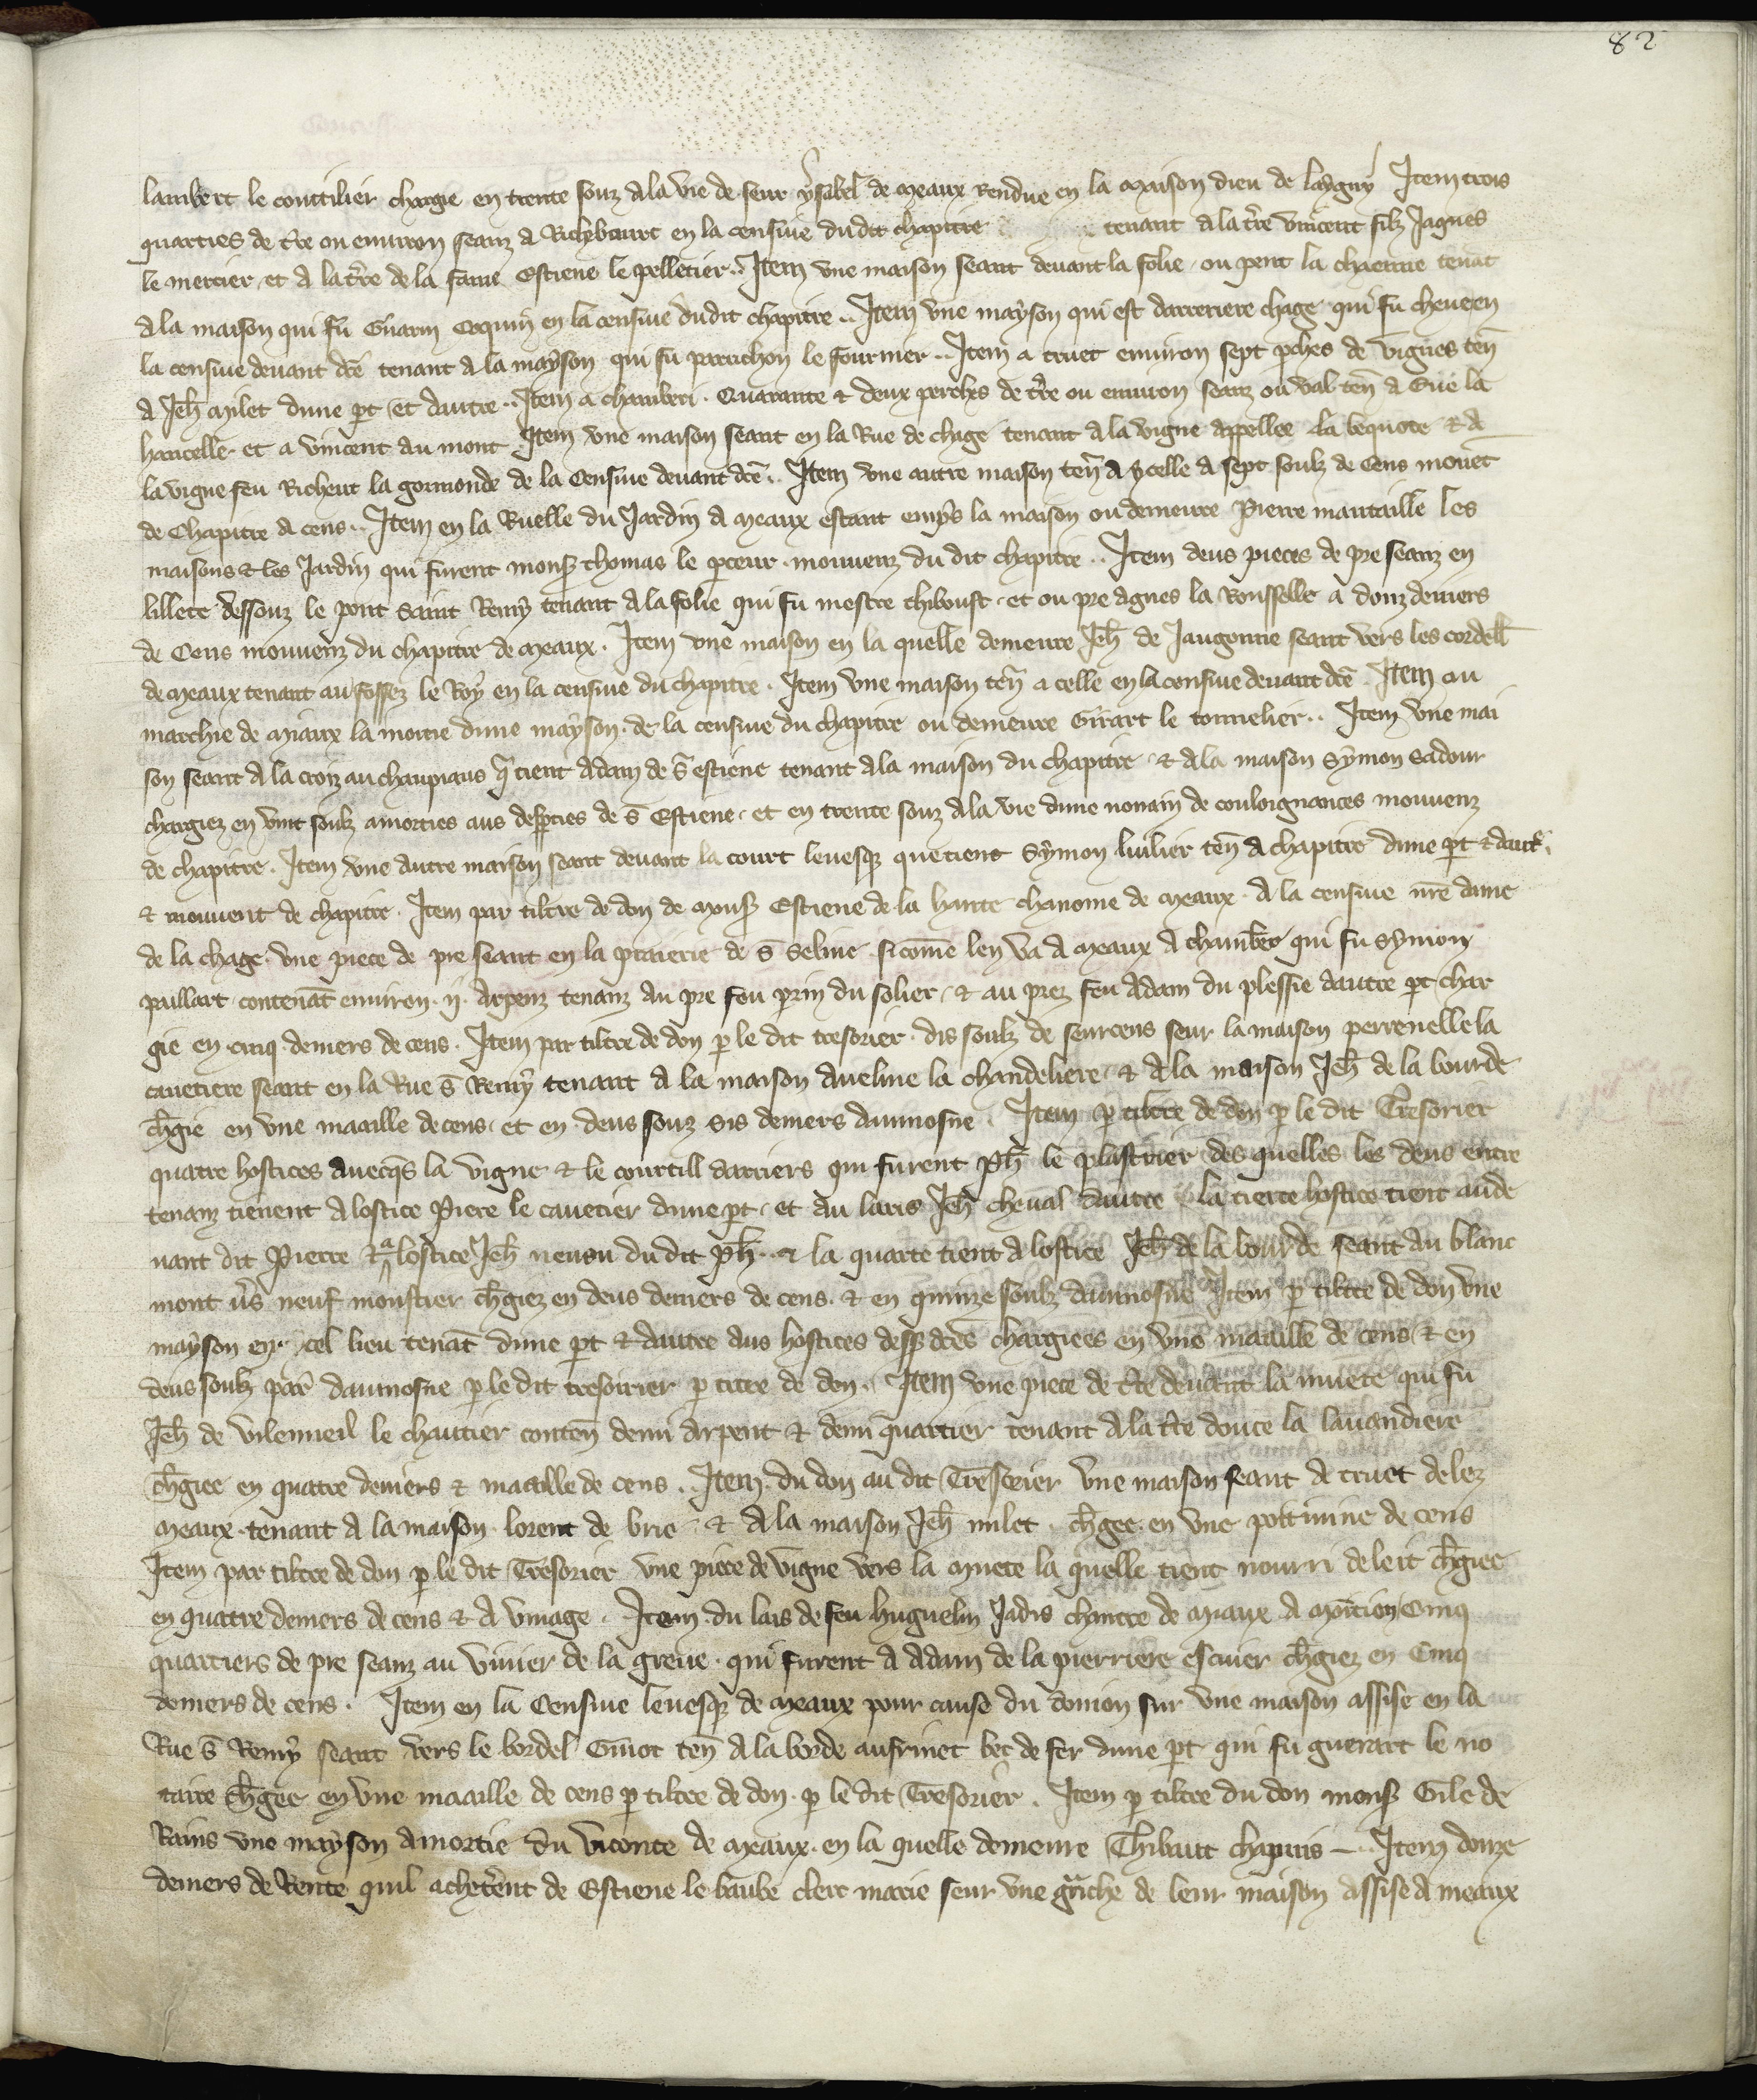 82
lambert le coutilier chargie en trente souz a la vie de seur ysabel de meaux Rendue en la maison dieu de laygny Item trois
quartiers de t̃re ou environ seanz a Richebourt en la censive dudit chapitre tenant a la t̃re vincent filz Jaques
le mercier et a la t̃re de la fame Estiene le pelletier .. Item vne maison seant devant la folie ou pent la chaenne tenãt
a la maison qui fu Guarin Coquin en la censive dudit chapitre .. Item vne mayson qui est darreriere chage qui fu
la censive devant dc̃e tenant a la mayson qui fu perrichon le fournier .. Item a truet environ sept p̃ches de vignes teñ
a Jeh̃ mylet dune p̃t et dautre .. Item a chamberi . Quarante & deux perches de t̃re ou environ seanz ou val teñ a Gile la
hancelle et a vincent du mont Item vne maison seant en la Rue de chage tenant a la vigne appellee la bequote & a
la vigne feu Richeut la gormonde de la Censive devant dc̃e .. Item vne autre maison teñ a ycelle a sept soulz de Cens mouv̄et
de Chapitre a cens .. Item en la Ruelle du Jardin a meaux estant emp̃s la maison ou demeure Pierre mautaille les
maisons & les Jardin qui furent mons̃ thomas le p̃ceur . mouvenz du dit chapitre .. Item deus pieces de pre seanz en
lillete dessouz le pont saint Remy tenant a la folie qui fu mestre thiboust et ou pre agnes la Rousselle a douz deniers
de Cens mouvenz du chapitre de meaux . Item vne maison en la quelle demeure Jeh̃ de Jaugonne seant vers les cordel̃l
de meaux tenant au fossez le Roy en la censive du chapitre . Item vne maison teñ a celle en la censive devant dc̃e . Item ou
marchie de miaux la moitie dune mayson de la censive du chapitre ou demeure Girart le tonnelier .. Item vne mai
son seant a la croiz au chanpiaus q̃ tient adam de s̃ estiene tenant a la maison du chapitre & a la maison Symon Sadour
chargiez en vint soulz amorties aus de s̃ Estiene et en trente souz a la vie dune nonain de couloignances mouvenz
de chapitre . Item vne autre maison seant devant la court levesq̃ que tient Symon luilier teñ a chapitre dune p̃t & dautr̃
& mouvent de chapitre . Item par tiltre de don de mons̃ Estiene de la hante chanoine de meaux a la censive nr̃e dame
de la chage vne piece de pre seant en la praierie de s̃ Seline sicõme len va a meaux a chamb̃ri qui fu Symon
paillart contenãt environ . ij . arpenz tenanz au pre feu perrin du solier & au prez feu Adam du plessie dautre p̃t char
gie en cinq deniers de cens . Item par tiltre de don p̃ le dit tresorier dis soulz de seurcens seur la maison perrenelle la
cavetiere seant en la Rue s̃ Remy tenant a la maison aveline la chandeliere & a la maison Jeh̃ de la bourde
ch̃gie en vne maaille de cens et en deus souz sis deniers daumosne . Item p̃ tiltre de don p̃ le dit Tresorier
quatre hostices aveq̃s la vigne & le courtill darriers qui furent ph̃ le plastrier des quelles les deus entre
tenanz tienent a lostice Pierre le cavetier dune p̃t et au laris Jeh̃ cheval dautre la tierce hostice tient au de
vant dit Pierre & a lostice Jeh̃ neveu du dit ph̃ .. & la quarte tient a lostice Jeh̃ de la bourde seant au blanc
mont v̄s neuf monstier ch̃giez en deus deniers de cens & en quinze soulz daumosne Item p̃ tiltre de don vne
mayson en ycel lieu tenãt dune p̃t & dautre aus hostices dess̃ dc̃es chargiees en vne maaille de cens & en
deus soulz par̃ daumosne p̃ le dit tresorier p̃ titre de don . Item vne piece de t̃re devant la muete qui fu
Jeh̃ de vilemueil le chautier conteñ demi arpent & demi quartier tenant a la t̃re douce la lavandiere
ch̃giee en quatre deniers & maaille de cens .. Item du don au dit Tresorier vne maison seant a truet delez
meaux tenant a la maison lorent de brie & a la maison Jeh̃ milet ch̃gee en vne poitevine de cens
Item par tiltre de don p̃ le dit Tresorier vne piece de vigne vers la muete la quelle tient nourri deleit ch̃giee
en quatre deniers de cens & a vinage . Item du lais de feu huguelin Jadis chantre de miaux a Cinq
quartiers de pre seanz au vivier de la greve qui furent a adam de la pierriere escuier ch̃giez en Cinq
deniers de cens . Item en la Censive levesq̃ de meaux pour cause du donion sur vne maison assise en la
Rue s̃ Remy seant vers le bordel Guiot teñ a la borde aufrinet bec de fer dune p̃t qui fu guerart le no
taire ch̃gee en vne maaille de cens p̃ tiltre de don p̃ le dit Tresorier . Item p̃ tiltre du don mons̃ Gile de
Rains vne mayson amortie du viconte de meaux en la quelle demeure Thibaut chapuis .. Item douze
deniers de Rente quil acheterent de Estiene le baube clerc marie seur vne gr̃iche de leur maison assise a meaux